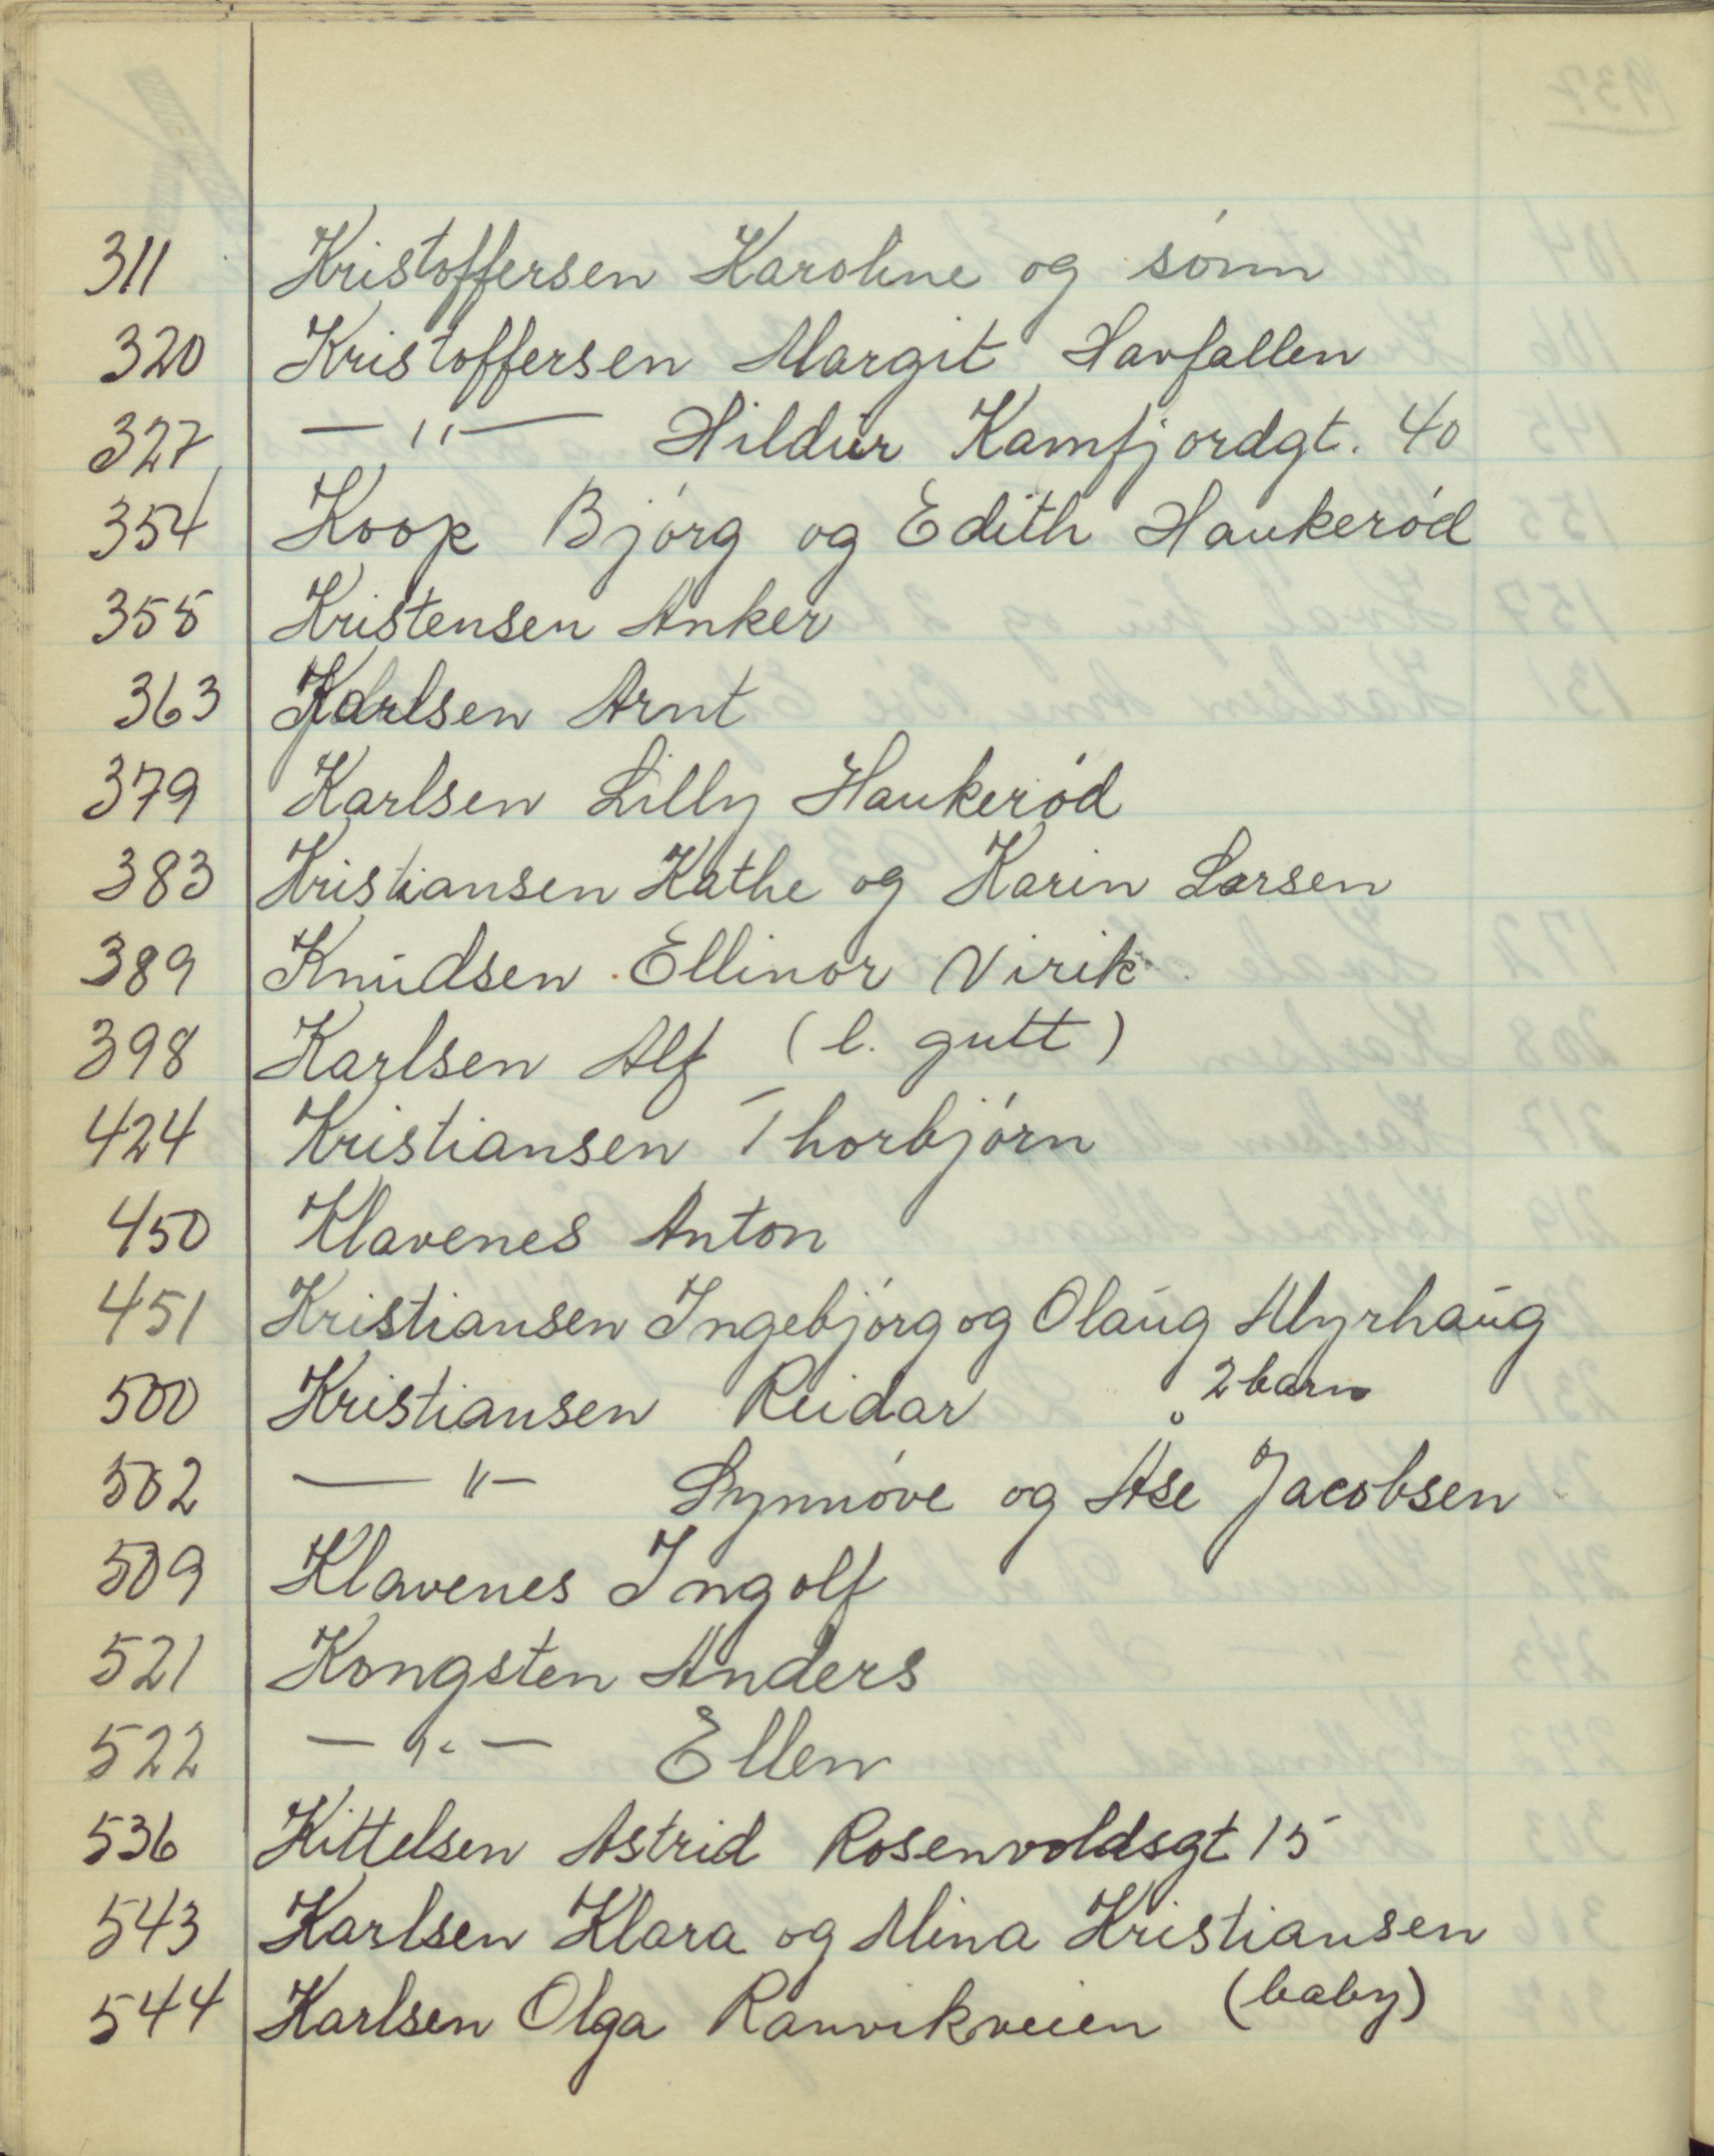 311 Kristoffersen Karoline og sónn
320 Kristoffersen Margit Havfallen
327 — " — Hildur Kamfjordgt. 40
354 Koop Bjórg og Edith Haukeród
355 Kristensen Anker
363 Karlsen Arnt
379 Karlsen Lilly Haukeród
383 Kristiansen Kathe og Karin Larsen
389 Knudsen Ellinor Virik
398 Karlsen Alf (l. gutt)
424 Kristiansen Thorbjórn
450 Klavenes Anton
451 Kristiansen Ingebjórg og Olaug Myrhaug
2 barn
500 Kristiansen Reidar
502 — " — Synnóve og Åse Jacobsen
509 Klavenes Ingolf
521 Kongsten Anders
522 — " — Ellen
536 Kittelsen Astrid Rosenvoldsgt 15
543 Karlsen Klara og Mina Kristiansen
544 Karlsen Olga Ranvikveien (baby)